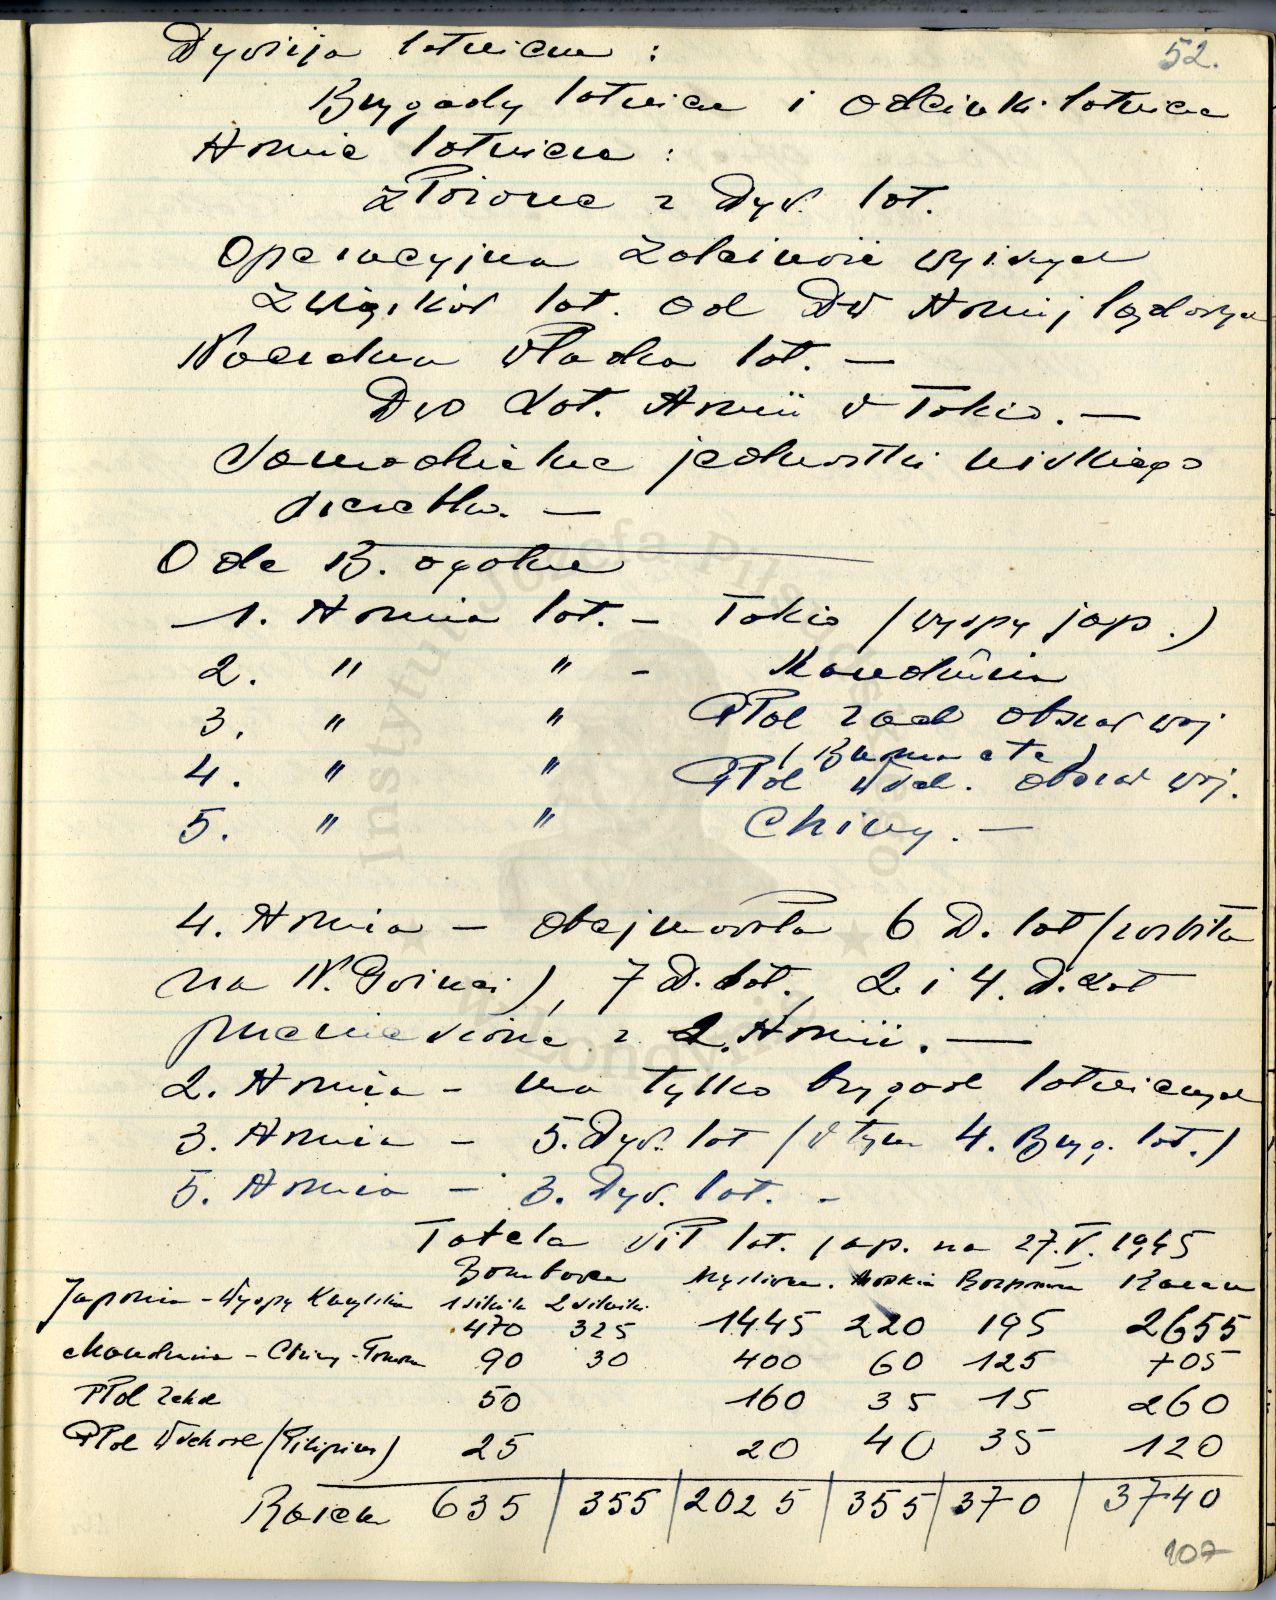 52.
Dywizja lotnicza :
Brygady lotnicze i Odcinki lotnicze
Armie lotnicze :
złożone z Dyw. lot.
Operacyjna zależność wyższych
związków lot. od DW Armij lądowych
Naczelna władza lot. —
Dwo Lot. Armii w Tokio. —
Samodzielne jednostki niskiego
szczebla. —
Ode B. ogólne
1. Armia lot. – Tokio (wyspy jap.)
2. " " – Mandżuria
3. " " Płd zach obszar woj
(Burma etc)
4. " " Płd wsch. obszar woj.
5. " " Chiny. —
4. Armia – obejmowała 6 D. lot (rozbita
na N. Gwinei), 7 D. lot., 2 i 4. D. Lot
przeniesione z 2. Armii. —
2. Armia – ma tylko brygad lotniczych
3. Armia – 5. Dyw. lot (w tym 4. Bryg. lot.)
5. Armia – 3. Dyw. lot. –
Tabela sił lot. jap. na 27.V.1945
Bombowe Myśliwce. Morskie Rozpozna Razem
Japonia – Wyspy Kurylskie 1 silnik 2 silniki
470 325 1445 220 195 2655
Mandżuria – Chiny – 90 30 400 60 125 705
Płd Zach 50 160 35 15 260
Płd Wschod (Filipiny) 25 20 40 35 120
Razem 635 | 355 | 2025 | 355 | 370 | 3740
107
Instytut Józefa Piłsudskiego
w Londynie